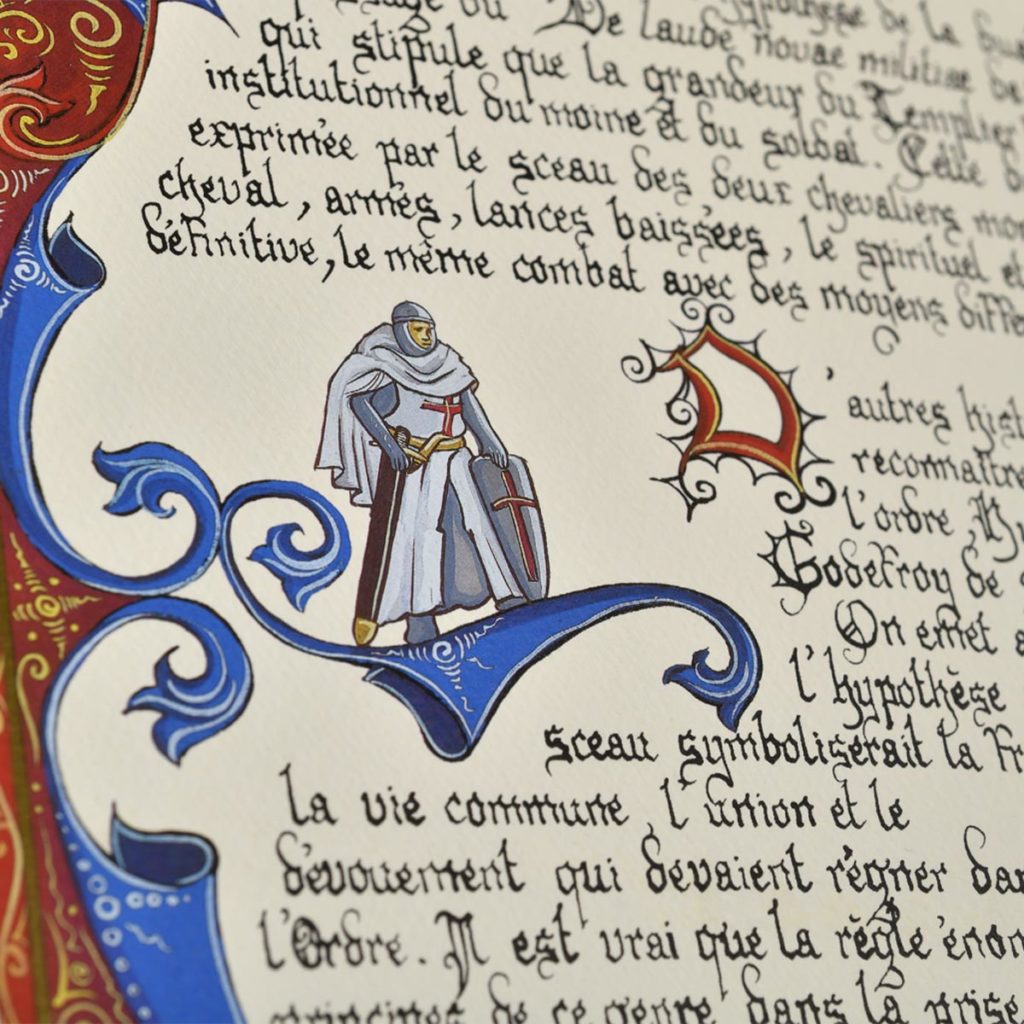 De laude novae militiae de
qui stipule que la grandeur du Templier
institutionnel du moine et du soldat. Celle
exprimée par le sceau des deux chevaliers
cheval, armés, lances baissées, le spirituel et
définitive, le même combat avec des moyens
D'autres
l'ordre,
Godefroy de
On émet
l'hypothèse
sceau symboliserait la
la vie commune, l'union et le
dévouement qui devaient régner
l'Ordre. Il est vrai que la règle
principes de ce genre dans la prise